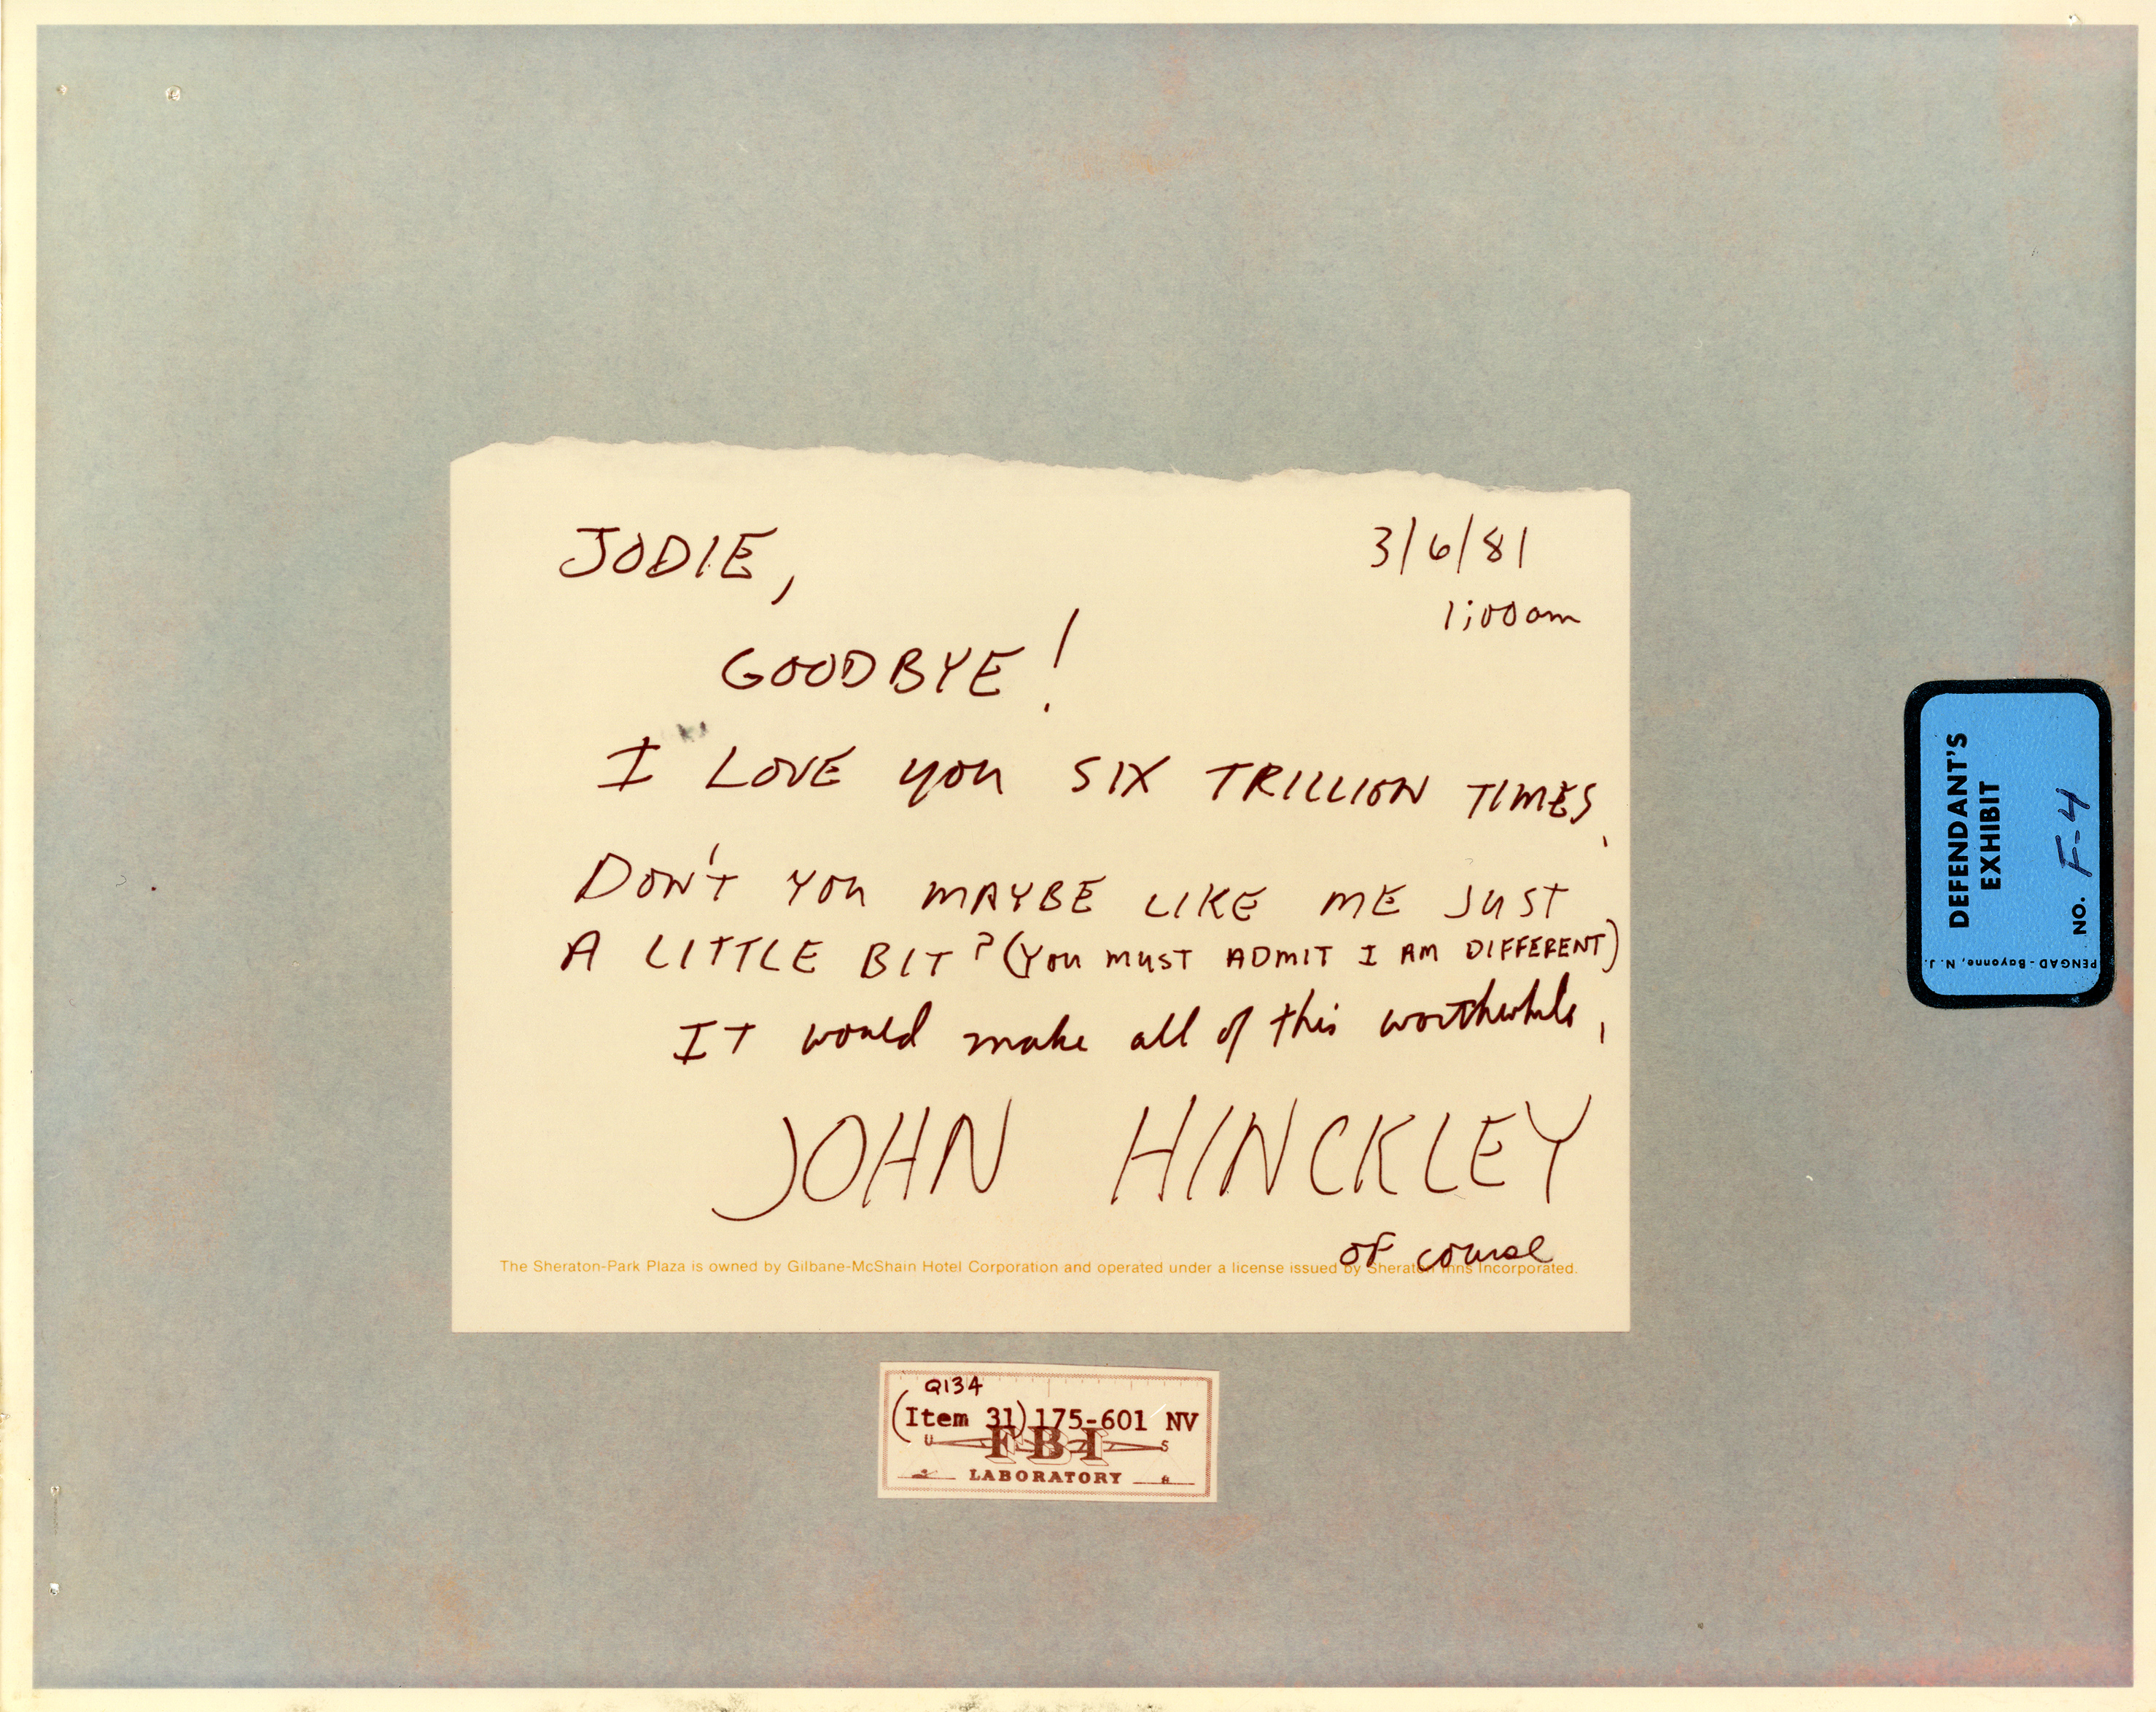 JODIE,
3/6/81
1;00am
GOODBYE!
I LOVE you SIX TRILLION TIMES.
DON'T YOU MAYBE LIKE ME JUST
A LITTLE BIT? (YOU MUST ADMIT I AM DIFFERENT)
IT would make all of this worthwhile.
JOHN HINCKLEY
of course
The Sheraton-Park Plaza is owned by Gilbane-McShain Hotel Corporation and operated under a license issued by Sheraton Inns Incorporated.
DEFENDANT'S
EXHIBIT
NO. F-4
PENGAD-Bayonne, N. J.
Q134
(Item 31) 175-601 NV
U FBI S
LABORATORY